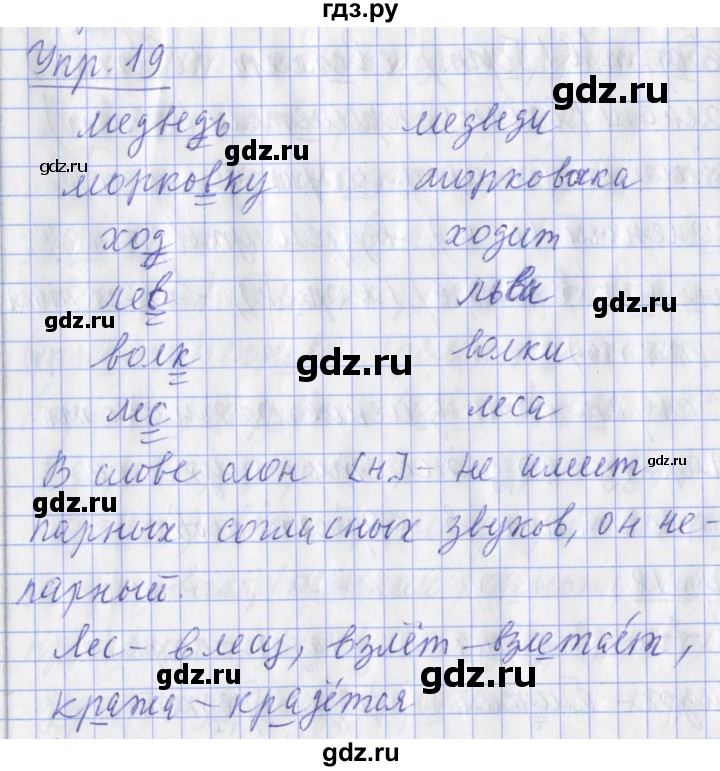 гдз.ру
Упр. 19
медведь медведи
морковку морковка
ход ходит
лев льва
волк волки
лес леса
В слове слон [н] - не имеет
парных согласных звуков, он не-
парный.
Лес - в лесу, взлёт - взлетает,
кража - крадётся
gdz.ru
gdz.ru
gdz.ru
gdz.ru
gdz.ru
gdz.ru
gdz.ru
gdz.ru
gdz.ru
gdz.ru
gdz.ru